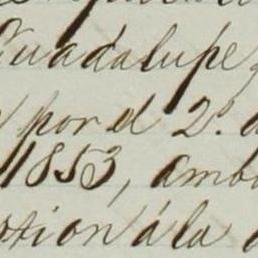 Guadalupe y
por el 2.º d
1853, amb
stion á la